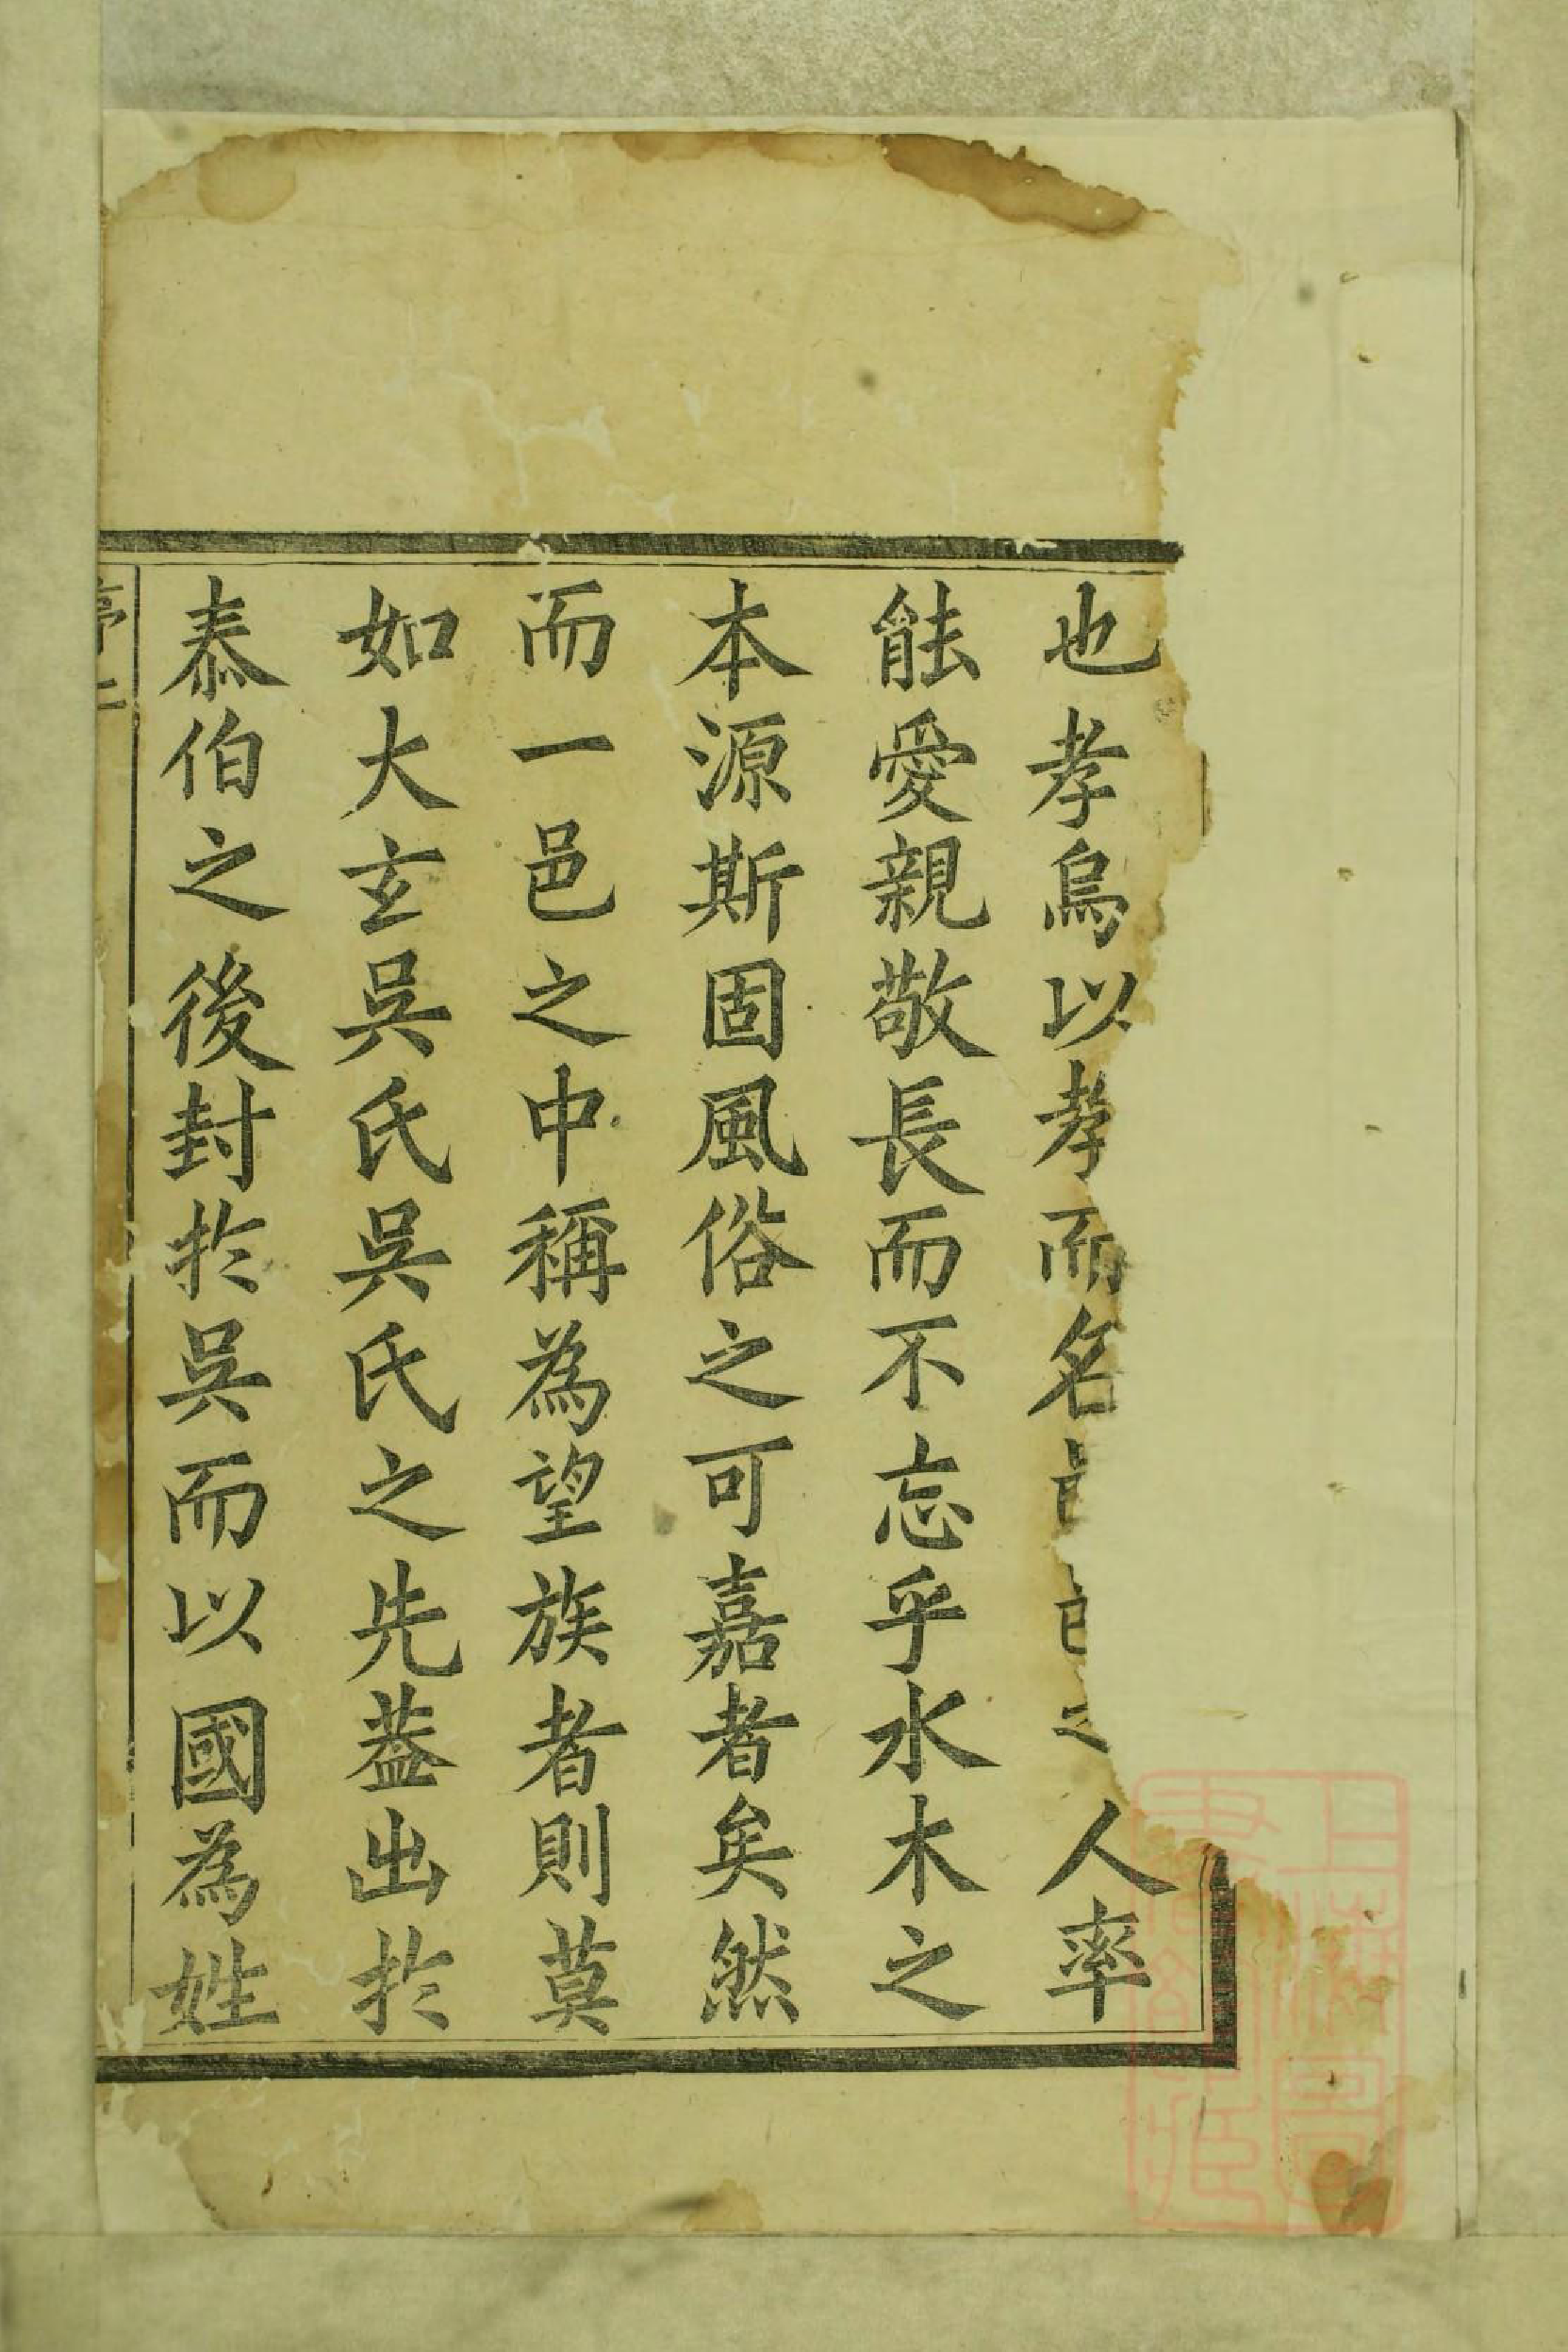 也孝烏以孝而名之人率
能愛親敬長而不忘乎水木之
本源斯固風俗之可嘉者矣然
而一邑之中稱為望族者則莫
如大玄吳氏吳氏之先葢出於
泰伯之後封於吳而以國為姓
序二
上海圖書館藏